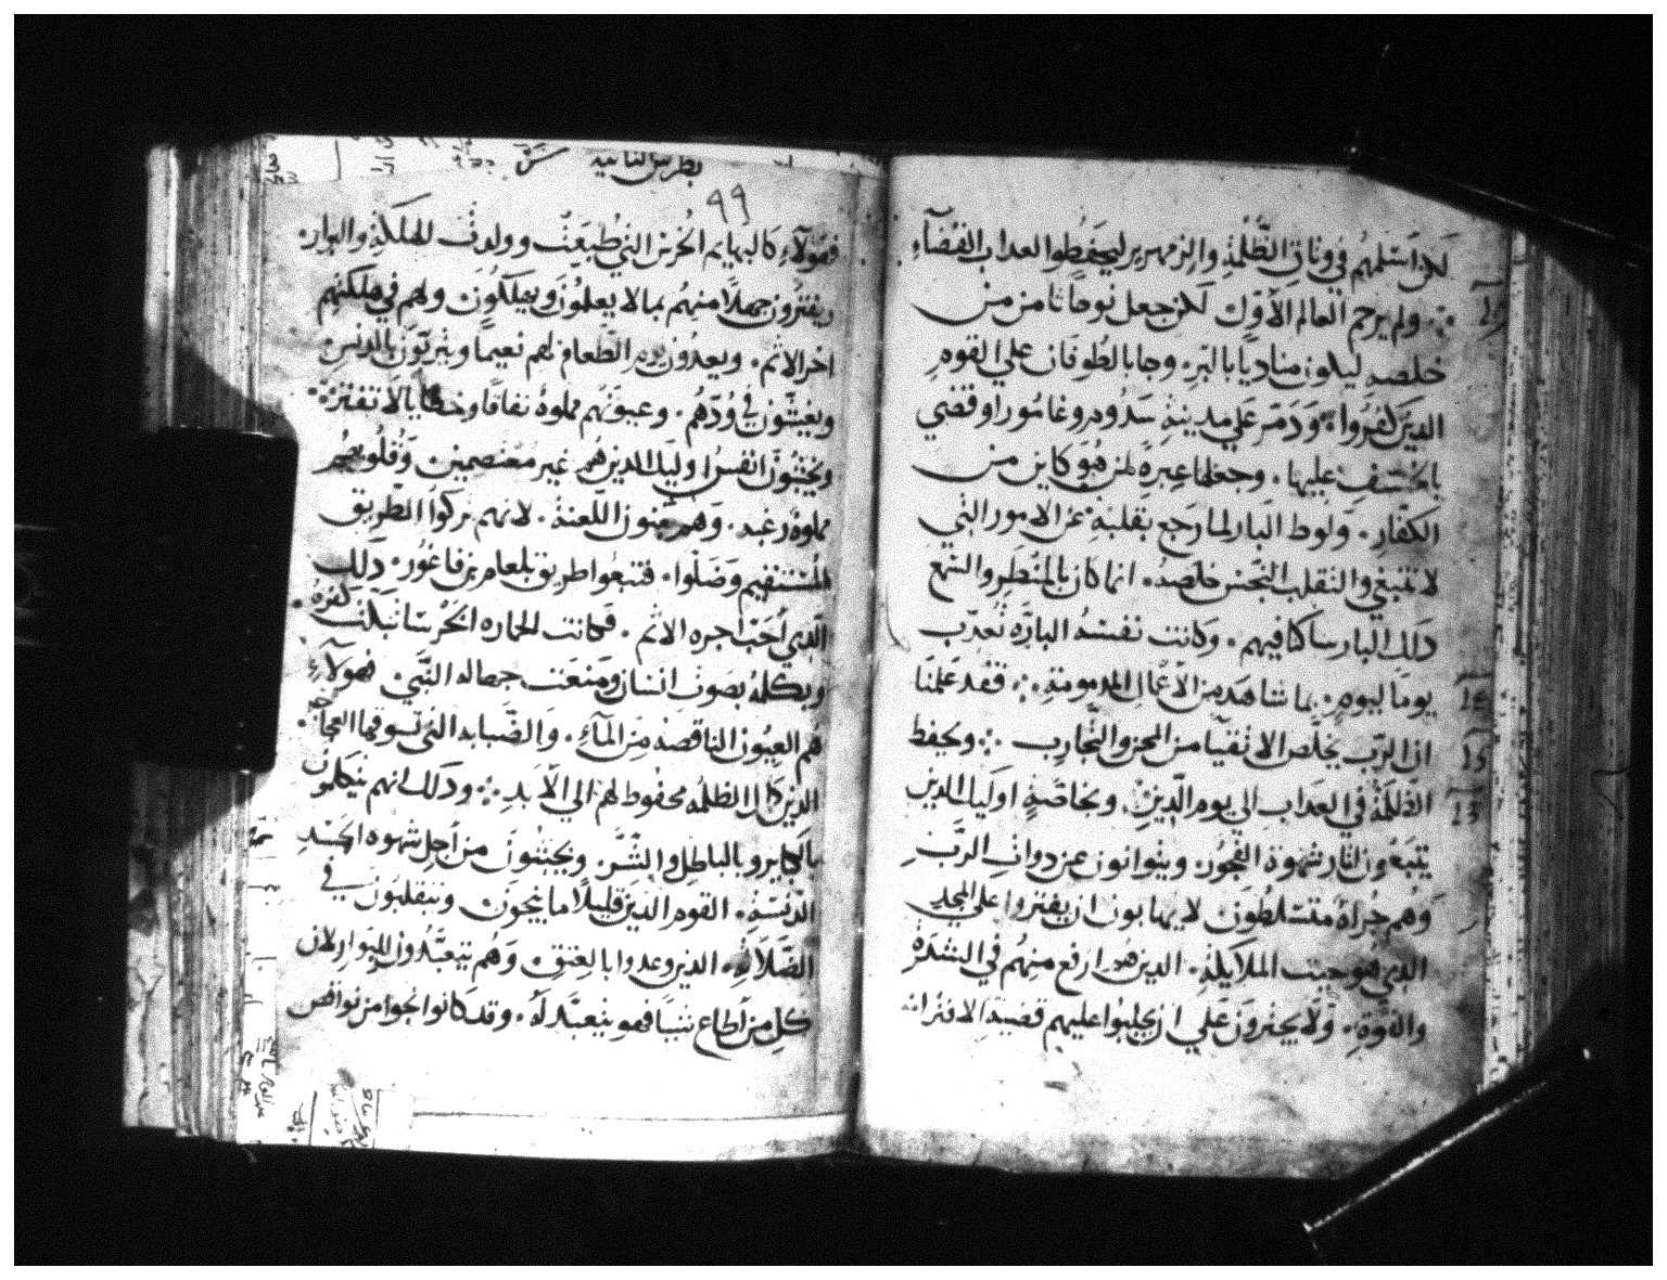 لكن اسلمهم في وثاق الظلمة والزمهرير ليحفظوا لعداب القضآء
ولم يرحم العالم الأول لكن جعل نوحا ثامن من
خلصه ليكون مناديا بالبر. وجا بالطوفان علي القوم
الدين كفروا. ودمر علي مدينة سدوم وغامورا وقضي
بالخسف عليها. وجعلها عبرة لمن هو كاين من
الكفار. ولوط البار لما رجع بقلبه عن الامور التي
لا تنبغي والتقلب النجس خلصه. انما كان بالمنظر والسمع
دلك البار ساكنا فيهم. وكانت نفسه البارة تعدب
يوما ليوم. بما شاهد من الأعمال المدمومة. فقد علمنا
ان الرب يخلص الاتقيآ من المحن والتجارب. ويحفظ
الظلمة في العداب الي يوم الدين. وبخاصة اوليك الدين
يتبعون اثار شهوة الفجور. ويتوانون عن الرب
وهم جراة متسلطون لا يهابون ان يفتروا علي المجد
الدي هو حيت الملايكة. الدين هم ارفع منهم في الشدة
والقوة. ولا يجترون علي ان يجلبوا عليهم قضية الافترا
بطرس الثانيه
٩٩
فهولآء كالبهايم الخرس التي طبعت وولدت للهلكة والبوار.
ويفترون جهلا منهم بما لا يعلمون ويهلكون. ولهم في هلكتهم
اجر الاثم. ويعدون يوم الطعام لهم نعيما بالدنس
في ودهم. وعيونهم مملوة نفاقا وخطايا لا تفتر
انفس اوليك الدين هم غير معتصمين. وقلوبهم
مملوة رغبه. وهم بنون اللعنة. لانهم تركوا الطريق
المستقيم وضلوا. فتبعوا طريق بلعام بن فاغور. دلك
الدي احب اجره الاثم. فكانت الحماره الخرسا كفره
وبكلمة بصوت انسان ومنعت جهاله النبي. فهولآء
هم العيون الناقصة من المآء. والضبابه التي تسوقها العجاج.
الدين كان الظلمه محفوظ لهم الي الابد. ودلك انهم يتكلمون
بالكباير وبالباطل والشر. من اجل شهوه الجسد
الدنسة. القوم الدين قليلا ما ينجون. ويتقلبون في
الضلالة. الدين وعدوا بالعتق. وهم يتعبدون للبوار لان
كل من أطاع شيا فهو يتعبد له. وقد كانوا نجوا من نواقص